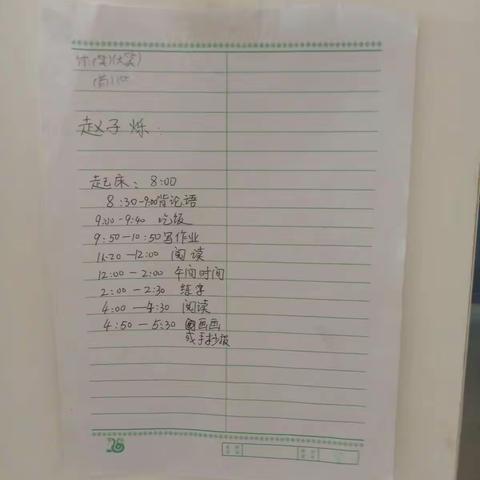 赵子烁：
起床：8:00
8:30-9:00背论语
9:10-9:40 吃饭
9:50-10:50写作业
11:20-12:00 阅读
12:00-2:00 午间时间
2:00-2:30 练字
4:00-4:30 阅读
4:50-5:30 画画
或手抄报
26